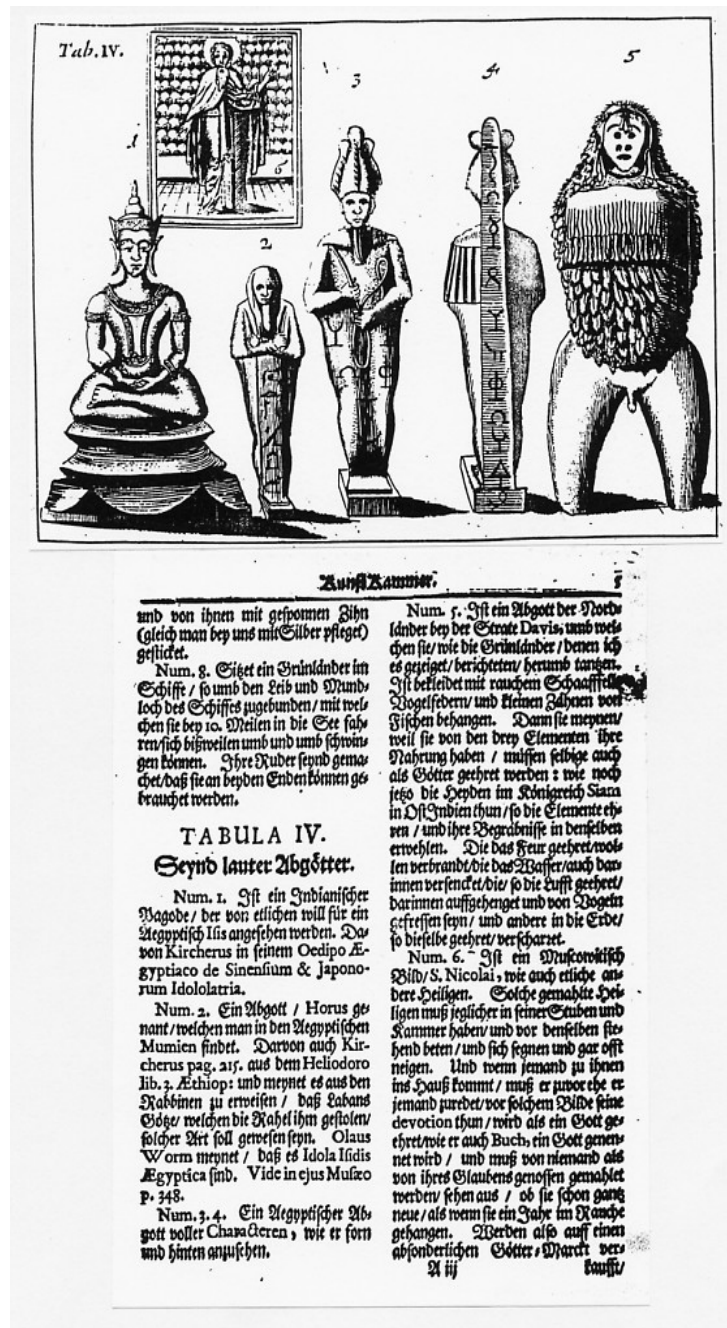 Tab. IV.
1
2
3
4
5
6
KunstKammer. 5
und von ihnen mit gesponnen Zihn
(gleich man bey uns mit Silber pfleget)
gesticket.
Num. 8. Sitzet ein Grünländer im
Schiffe / so umb den Leib und Mund-
loch des Schiffes zugebunden / mit wel-
chen sie bey 10. Meilen in die See fah-
ren/sich bißweilen umb und umb schwin-
gen können. Ihre Ruder seynd gema-
chet/daß sie an beyden Enden können ge-
brauchet werden.
TABULA IV.
Seynd lauter Abgötter.
Num. 1. Ist ein Indianischer
Pagode / der von etlichen will für ein
Aegyptisch Isis angesehen werden. Da-
von Kircherus in seinem Oedipo Æ-
gyptiaco de Sinensium & Japono-
rum Idololatria.
Num. 2. Ein Abgott / Horus ge-
nant/welchen man in den Aegyptischen
Mumien findet. Darvon auch Kir-
cherus pag. 215. aus dem Heliodoro
lib. 3. Æthiop: und meynet es aus den
Rabbinen zu erweisen / daß Labans
Götze/ welchen die Rahel ihm gestolen/
solcher Art soll gewesen seyn. Olaus
Worm meynet / daß es Idola Isidis
Ægyptica sind. Vide in ejus Musæo
p. 348.
Num. 3. 4. Ein Aegyptischer Ab-
gott voller Characteren, wie er forn
und hinten anzusehen.
Num. 5. Ist ein Abgott der Nord-
länder bey der Strate Davis, umb wel-
chen sie/ wie die Grünländer / denen ich
es gezeiget/ berichteten/ herumb tantzen.
Ist bekleidet mit rauchem Schaaffelle
Vogelfedern/ und kleinen Zähnen von
Fischen behangen. Dann sie meynen/
weil sie von den drey Elementen ihre
Nahrung haben / müssen selbige auch
als Götter geehret werden: wie noch
jetzo die Heyden im Königreich Siam
in OstIndien thun / so die Elemente eh-
ren / und ihre Begräbnisse in denselben
erwehlen. Die das Feur geehret/wol-
len verbrandt/die das Wasser/auch dar-
innen versencket/die/ so die Lufft geehret/
darinnen auffgehenget und von Vogeln
gefressen seyn / und andere in die Erde/
so dieselbe geehret/ verscharret.
Num. 6. Ist ein Muscowitisch
Bild/ S. Nicolai, wie auch etliche an-
dere Heiligen. Solche gemahlte Hei-
ligen muß jeglicher in seiner Stuben und
Kammer haben/ und vor denselben ste-
hend beten / und sich segnen und gar offt
neigen. Und wenn jemand zu ihnen
ins Hauß kommt / muß er zuvor ehe er
jemand zuredet/ vor solchem Bilde seine
devotion thun / wird als ein Gott ge-
ehret/wie er auch Buch, ein Gott genen-
net wird / und muß von niemand als
von ihres Glaubens genossen gemahlet
werden/ sehen aus / ob sie schon gantz
neue / als wenn sie ein Jahr im Rauche
gehangen. Werden also auff einen
absonderlichen Götter-Marckt ver-
A iij kaufft/